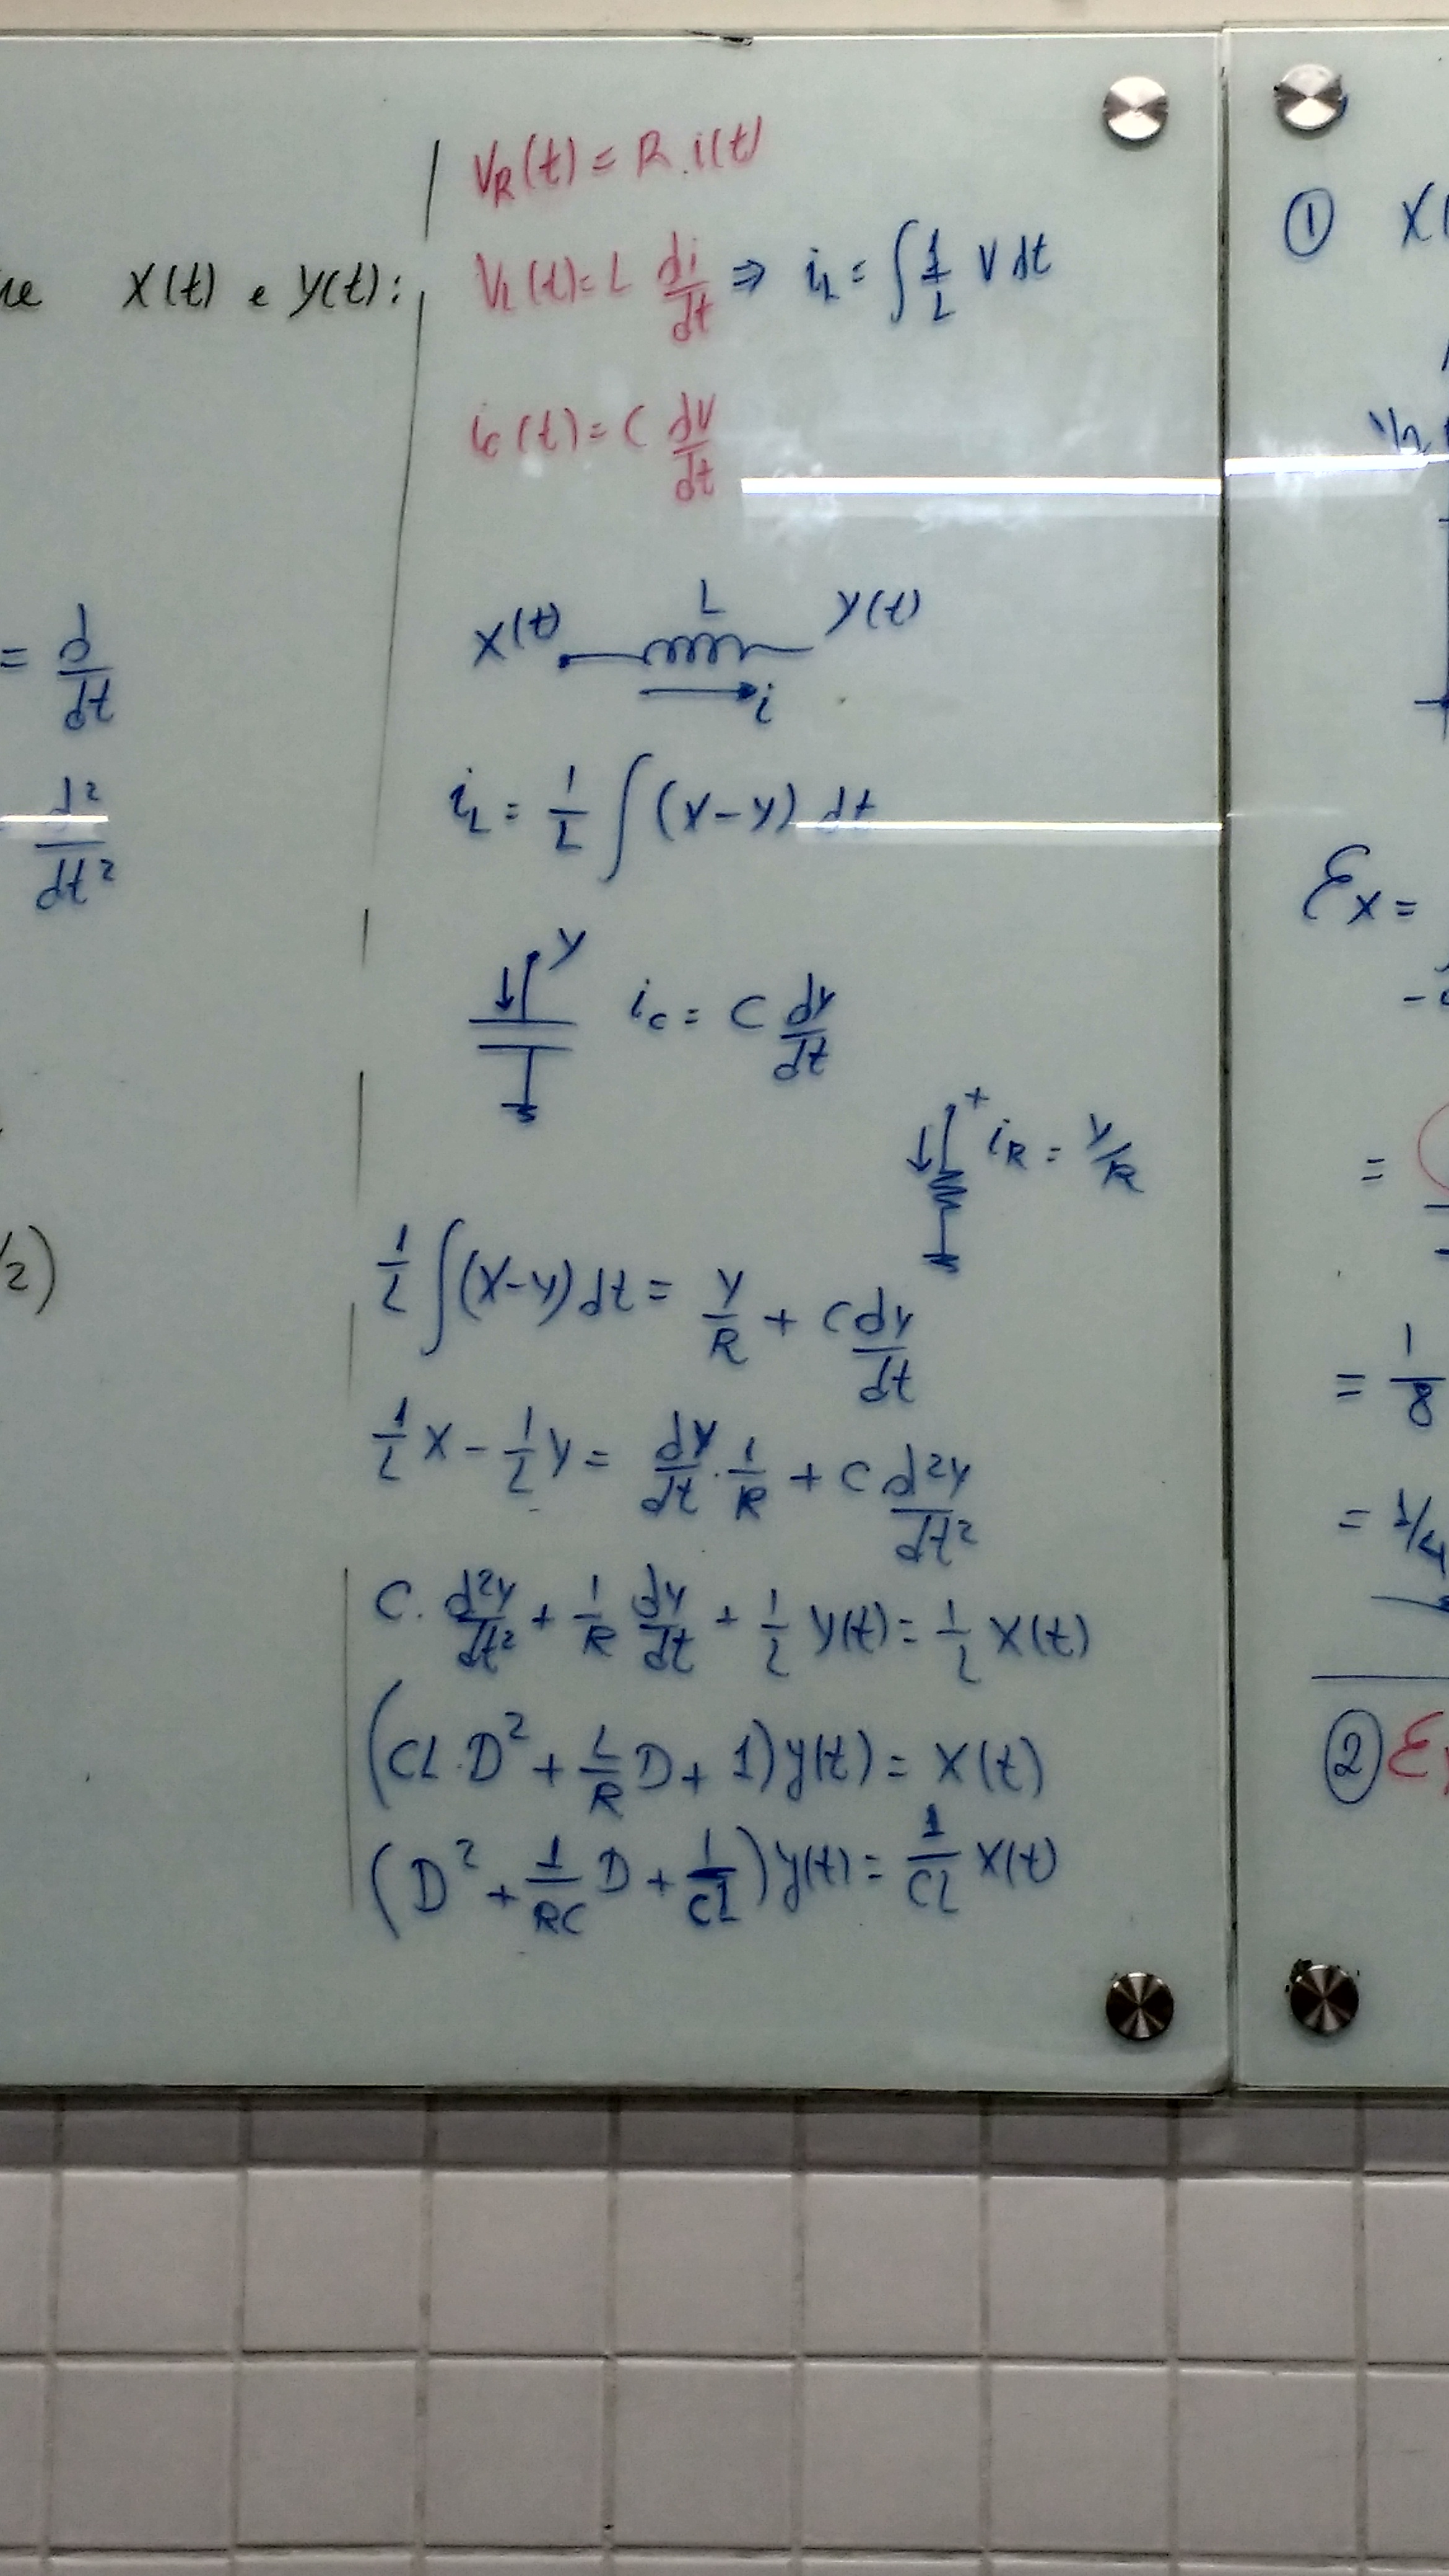 x(t) e y(t):
= d/dt
d²/dt²
/2)
V_R(t) = R.i(t)
V_L(t) = L di/dt ⇒ i_L = ∫ 1/L V dt
i_c(t) = C dV/dt
x(t) L y(t)
i
i_L = 1/L ∫ (x-y) dt
y
i_c = C dy/dt
+ i_R = y/R
1/L ∫(x-y)dt = y/R + C dy/dt
1/L x - 1/L y = dy/dt . 1/R + C d²y/dt²
C. d²y/dt² + 1/R dy/dt + 1/L y(t) = 1/L x(t)
(CL.D² + L/R D + 1) y(t) = x(t)
(D² + 1/RC D + 1/CL) y(t) = 1/CL x(t)
① x(
1/2
Ex =
=
= 1/8
= 1/4
② E